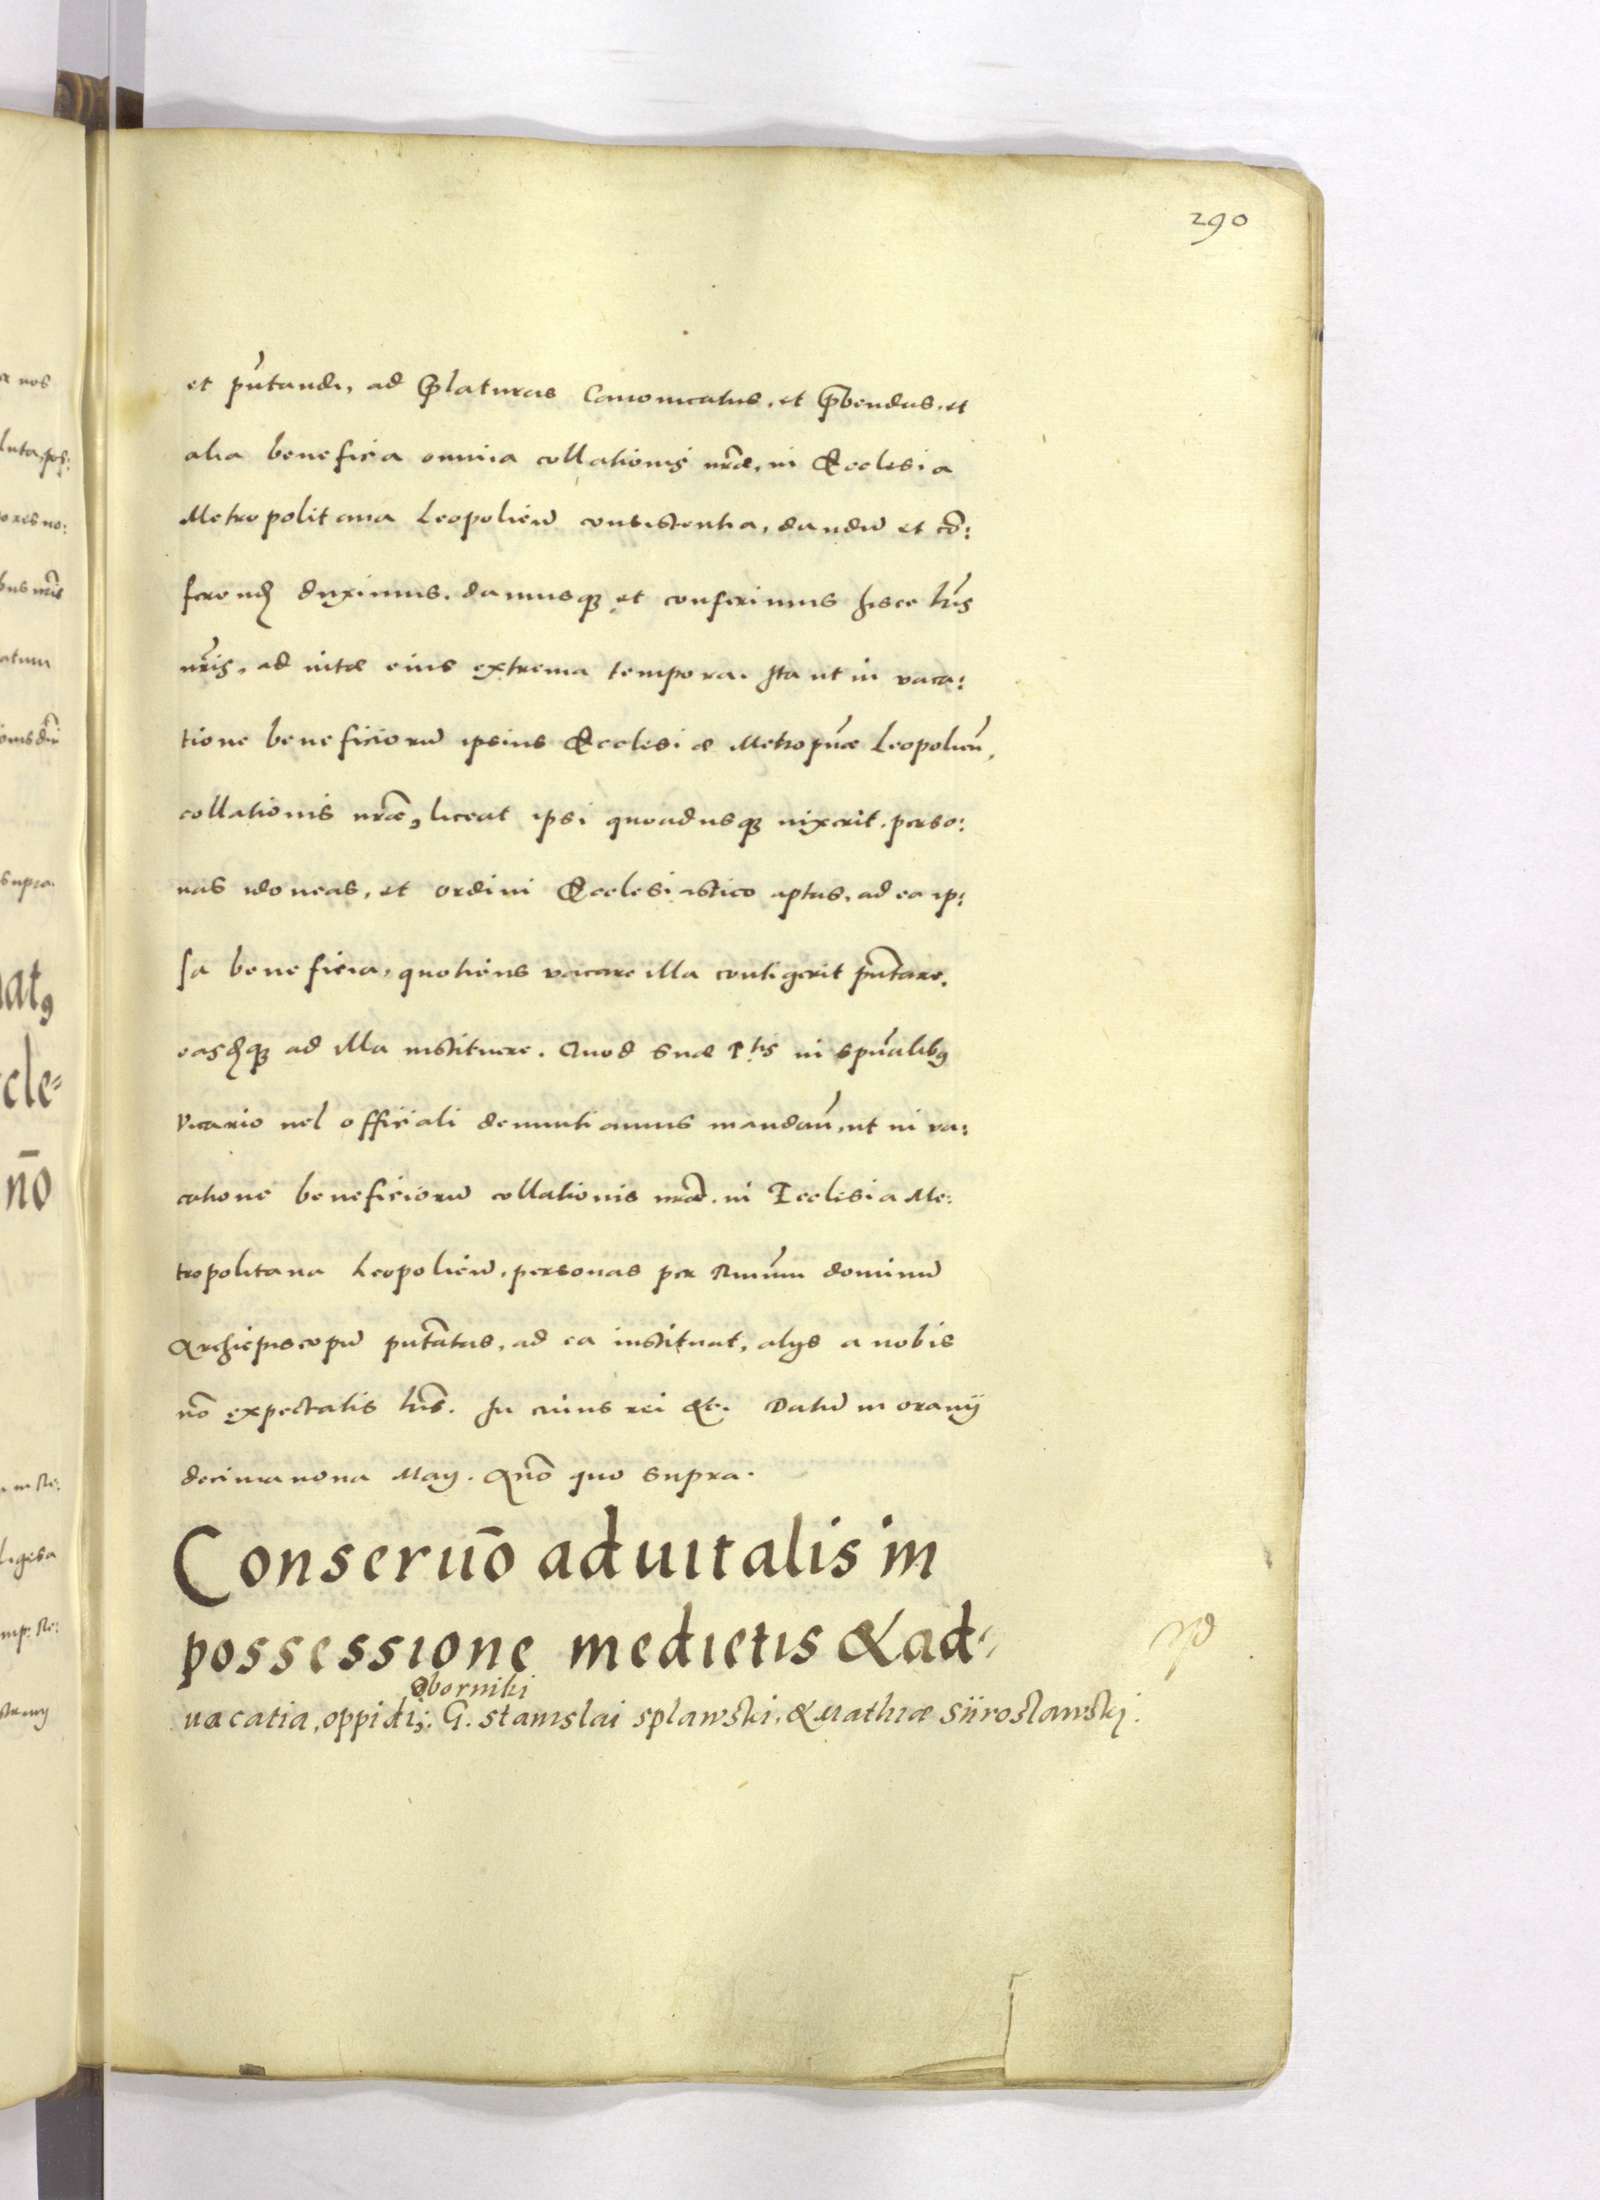 290
et pn̄tandi, ad Prælaturas Canonicatus, et Præbendas, et
alia beneficia omnia collationis nr̄æ, in Ecclesia
Metropolitana Leopolien̄ consistentia, dandū et cō:
ferend̄ duximus, damusq̨ et conferimus hisce lr̄is
nr̄is, ad uitæ eius extrema tempora. Ita ut in vaca:
tione beneficiorū ipsius Ecclesiæ Metropn̄æ Leopolien̄,
collationis nr̄æ, liceat ipsi quoadusq̨ uixerit, perso:
nas idoneas, et ordini Ecclesiastico aptas, ad ea ip:
sa beneficia, quotiens vacare illa contigerit pn̄tare,
easdq̨ ad illa instituere. Quod Suæ Ptis in spūalibꝯ
Vicario uel officiali denuntiamus mandan̄, ut in va:
catione beneficiorū collationis nr̄æ, in Ecclesia Me:
tropolitana Leopolien̄, personas per Rm̄um dominū
Archiepiscopū pn̄tatas, ad ea instituat, alijs a nobis
nō expectatis lr̄is. In cuius rei &c. Datū in oranij
decima nona Maij. Anō quo supra.
Conseruō aduitalis in
possessione medietis & ad⸗
oborniki
uacatia, oppidi; G. stanislai splawski, & Mathiæ Siiroslawskj.